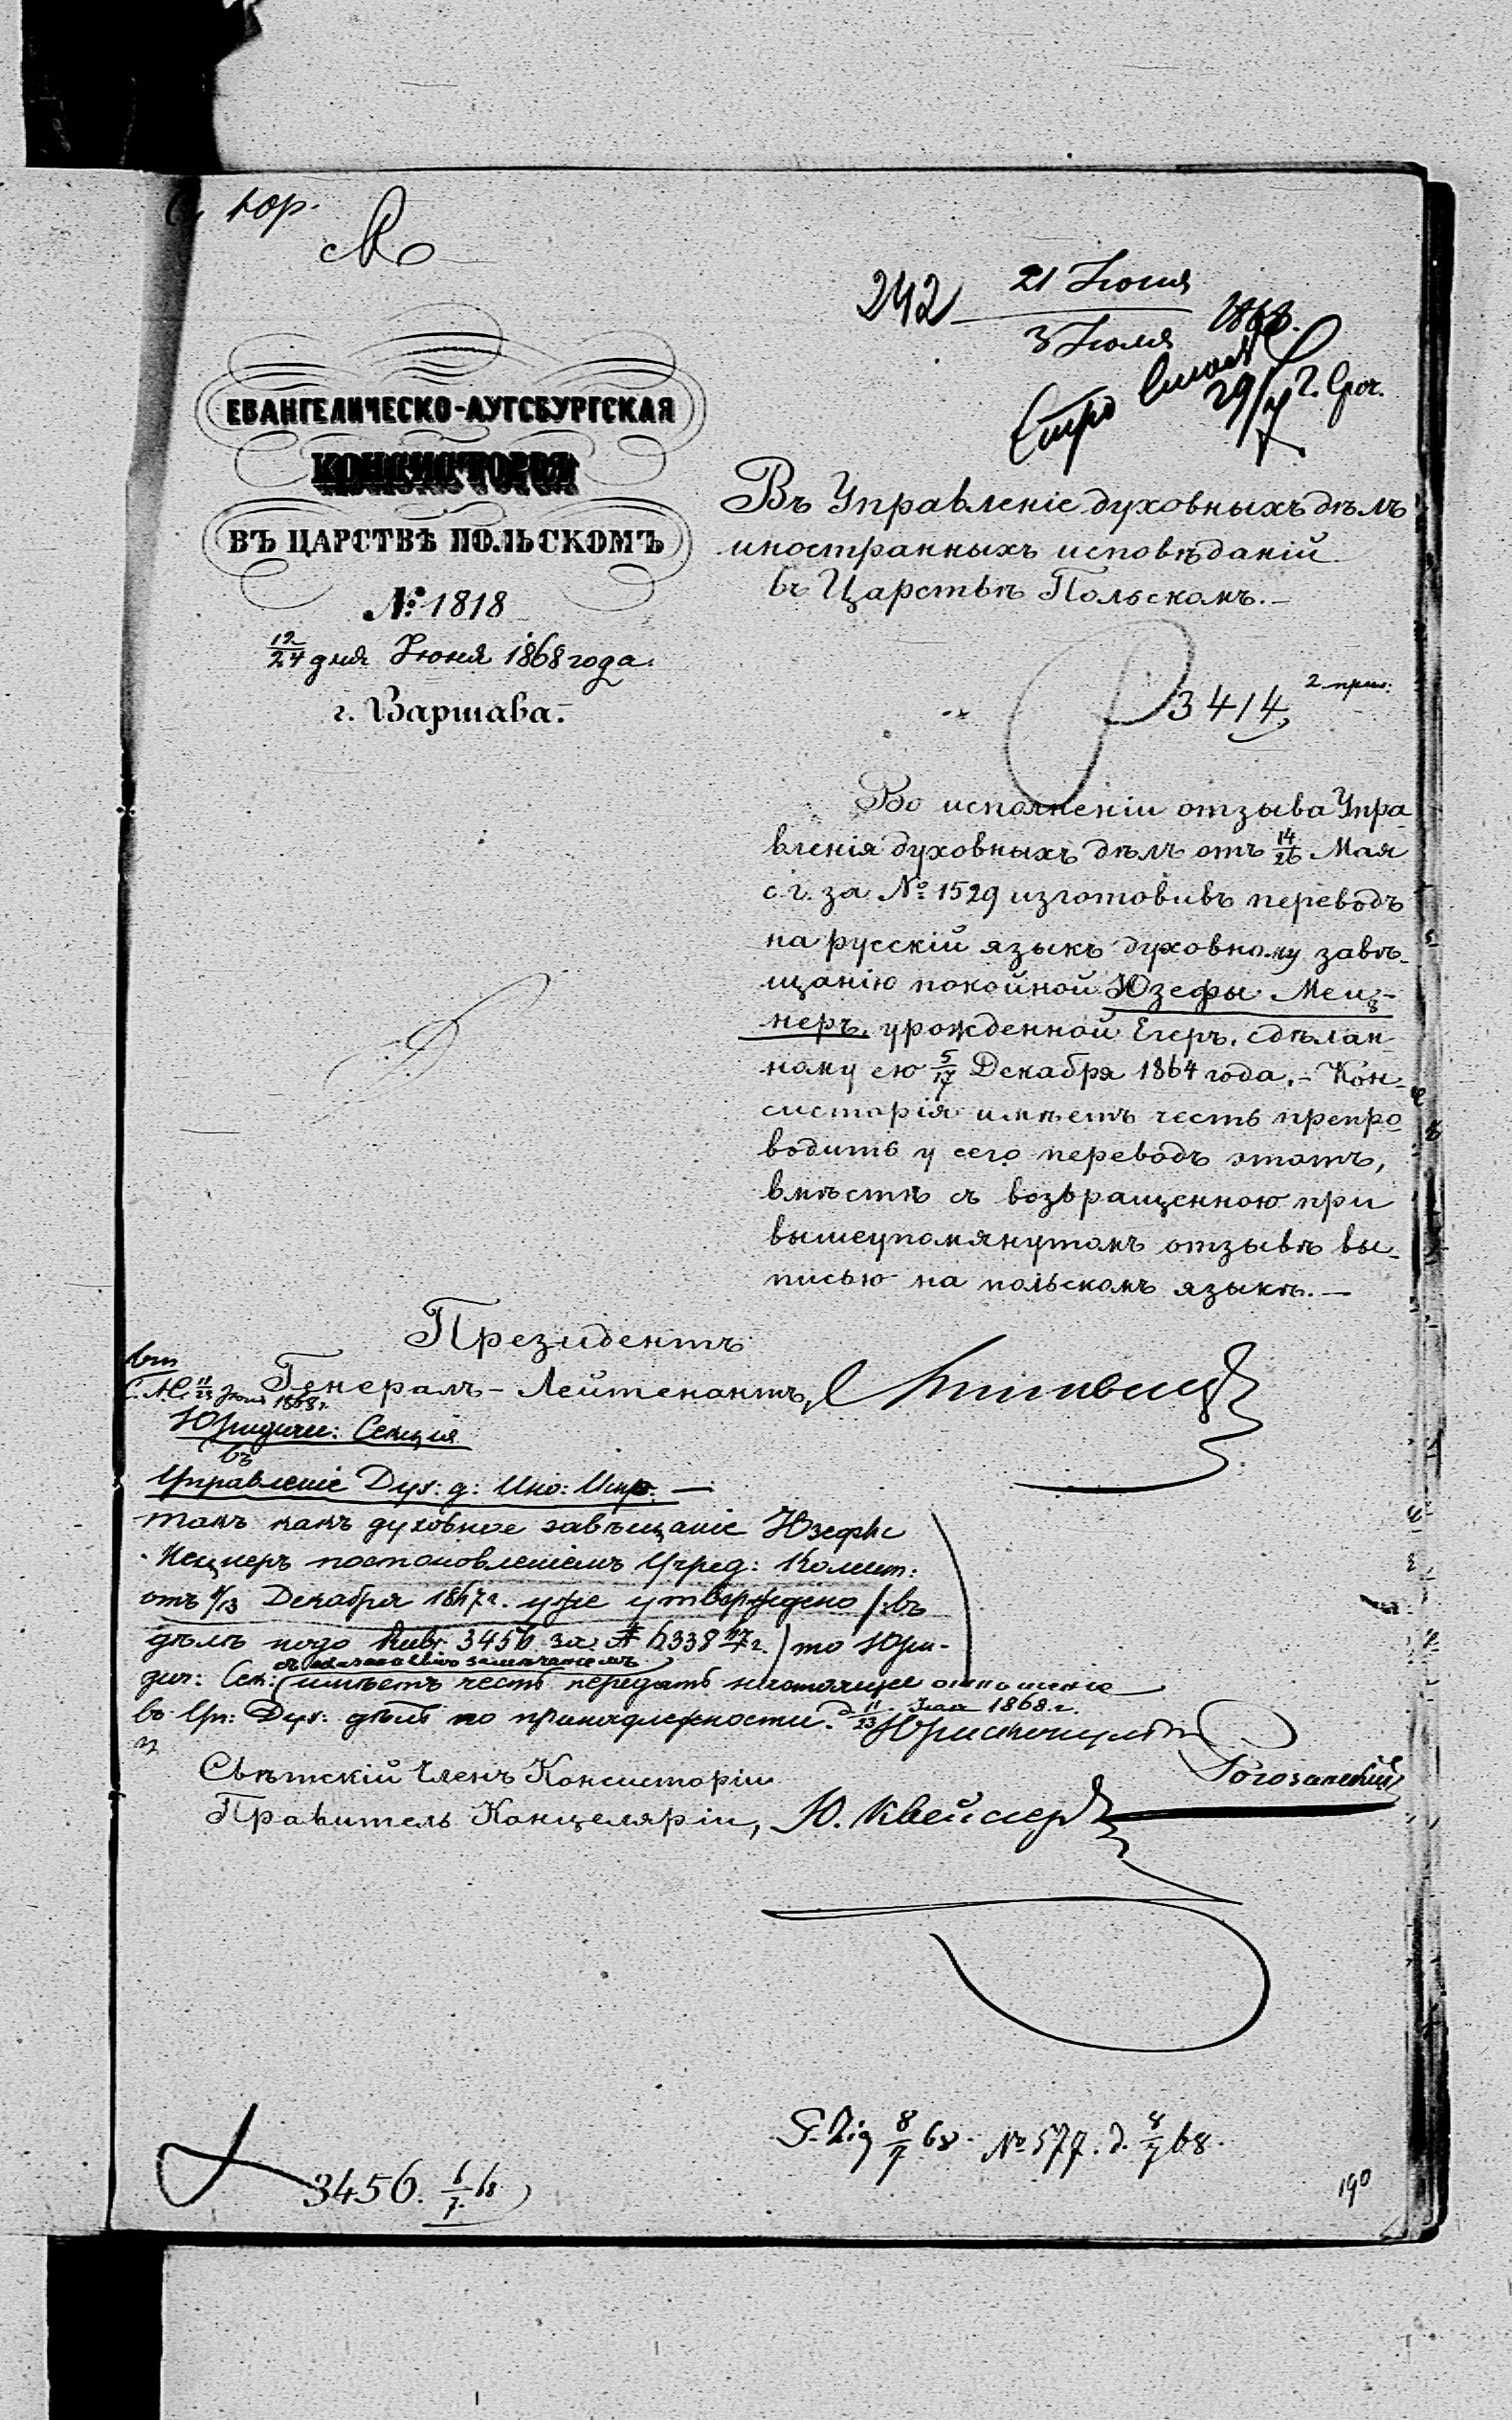 Юр.
242 21 Іюня
3 Іюля 1868.
ЕВАНГЕЛИЧЕСКО-АУГСБУРГСКАЯ
КОНСИСТОРІЯ
ВЪ ЦАРСТВѢ ПОЛЬСКОМЪ
№ 1818
12/24 дня Іюня 1868 года.
г. Варшава.
Въ Управленіе духовныхъ дѣлъ
иностранныхъ исповѣданій
въ Царствѣ Польскомъ.—
3414, 2 прил:
Во исполненіи отзыва Упра-
вленія духовныхъ дѣлъ отъ 14/26 Мая
с.г. за № 1529 изготовивъ переводъ
на русскій языкъ духовному завѣ-
щанію покойной Юзефы Мец-
неръ, урожденной Егеръ, сдѣлан-
ному ею 5/17 Декабря 1864 года.- Кон-
систорія имѣетъ честь препро-
водить у сего переводъ этотъ,
вмѣстѣ съ возвращенною при
вышеупомянутомъ отзывѣ вы-
писью на польскомъ языкѣ.—
Президентъ
Генералъ-Лейтенантъ,
11/23 1868 г.
Юридич: Секція
въ
Управленіе Дух: д: Ино: Исп: —
такъ какъ духовное завѣщаніе Юзефы
Мецнеръ постановленіемъ Учред: Комит:
отъ 1/13 Декабря 1867 г. уже утверждено /:въ
дѣлѣ 3456 за № 6338 г.) то Юри-
дич: Сек: имѣетъ честь передать настоящее отношеніе
въ Упр: Дух: дѣлъ по принадлежности. д. 11/23 1868 г.
Юрисконсультъ
Свѣтскій Членъ Консисторіи
Правитель Канцеляріи, Ю. Квейсеръ
8/7 68. № 577. д. 8/7 68.
3456. 6/7 68
190